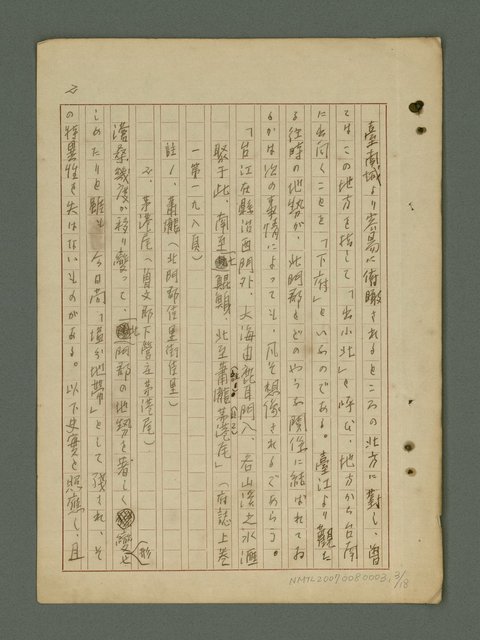 臺南城より容易に俯瞰されるところの北方に對し、曽
てはこの地方を指して「出小北」と呼び、地方から台南
に出向くことを「下府」といふのである。臺江より觀た
る往時の地勢が、北門郡とどのやうな關係に結ばれてお
るかは次の事情によっても、凡そ想像されるであらう。
「台江在縣治西門外、大海由鹿耳門入、各山溪之水滙
聚于此、南至 鯤鯓、北至蕭壠茅港尾」(府誌上卷
一第一九八頁)
註1、蕭壠(北門郡佳里街佳里)
2、茅港尾(曽文郡下營庄茅港尾)
滄桑幾度か移り變って、北門郡の地勢を著しく變形せ
しめたりと雖も、今日尚「塩分地帶」として殘され、そ
の特異性を失はないものがある。以下史實と照應し、且
2
NMTL20070080003, 3/18